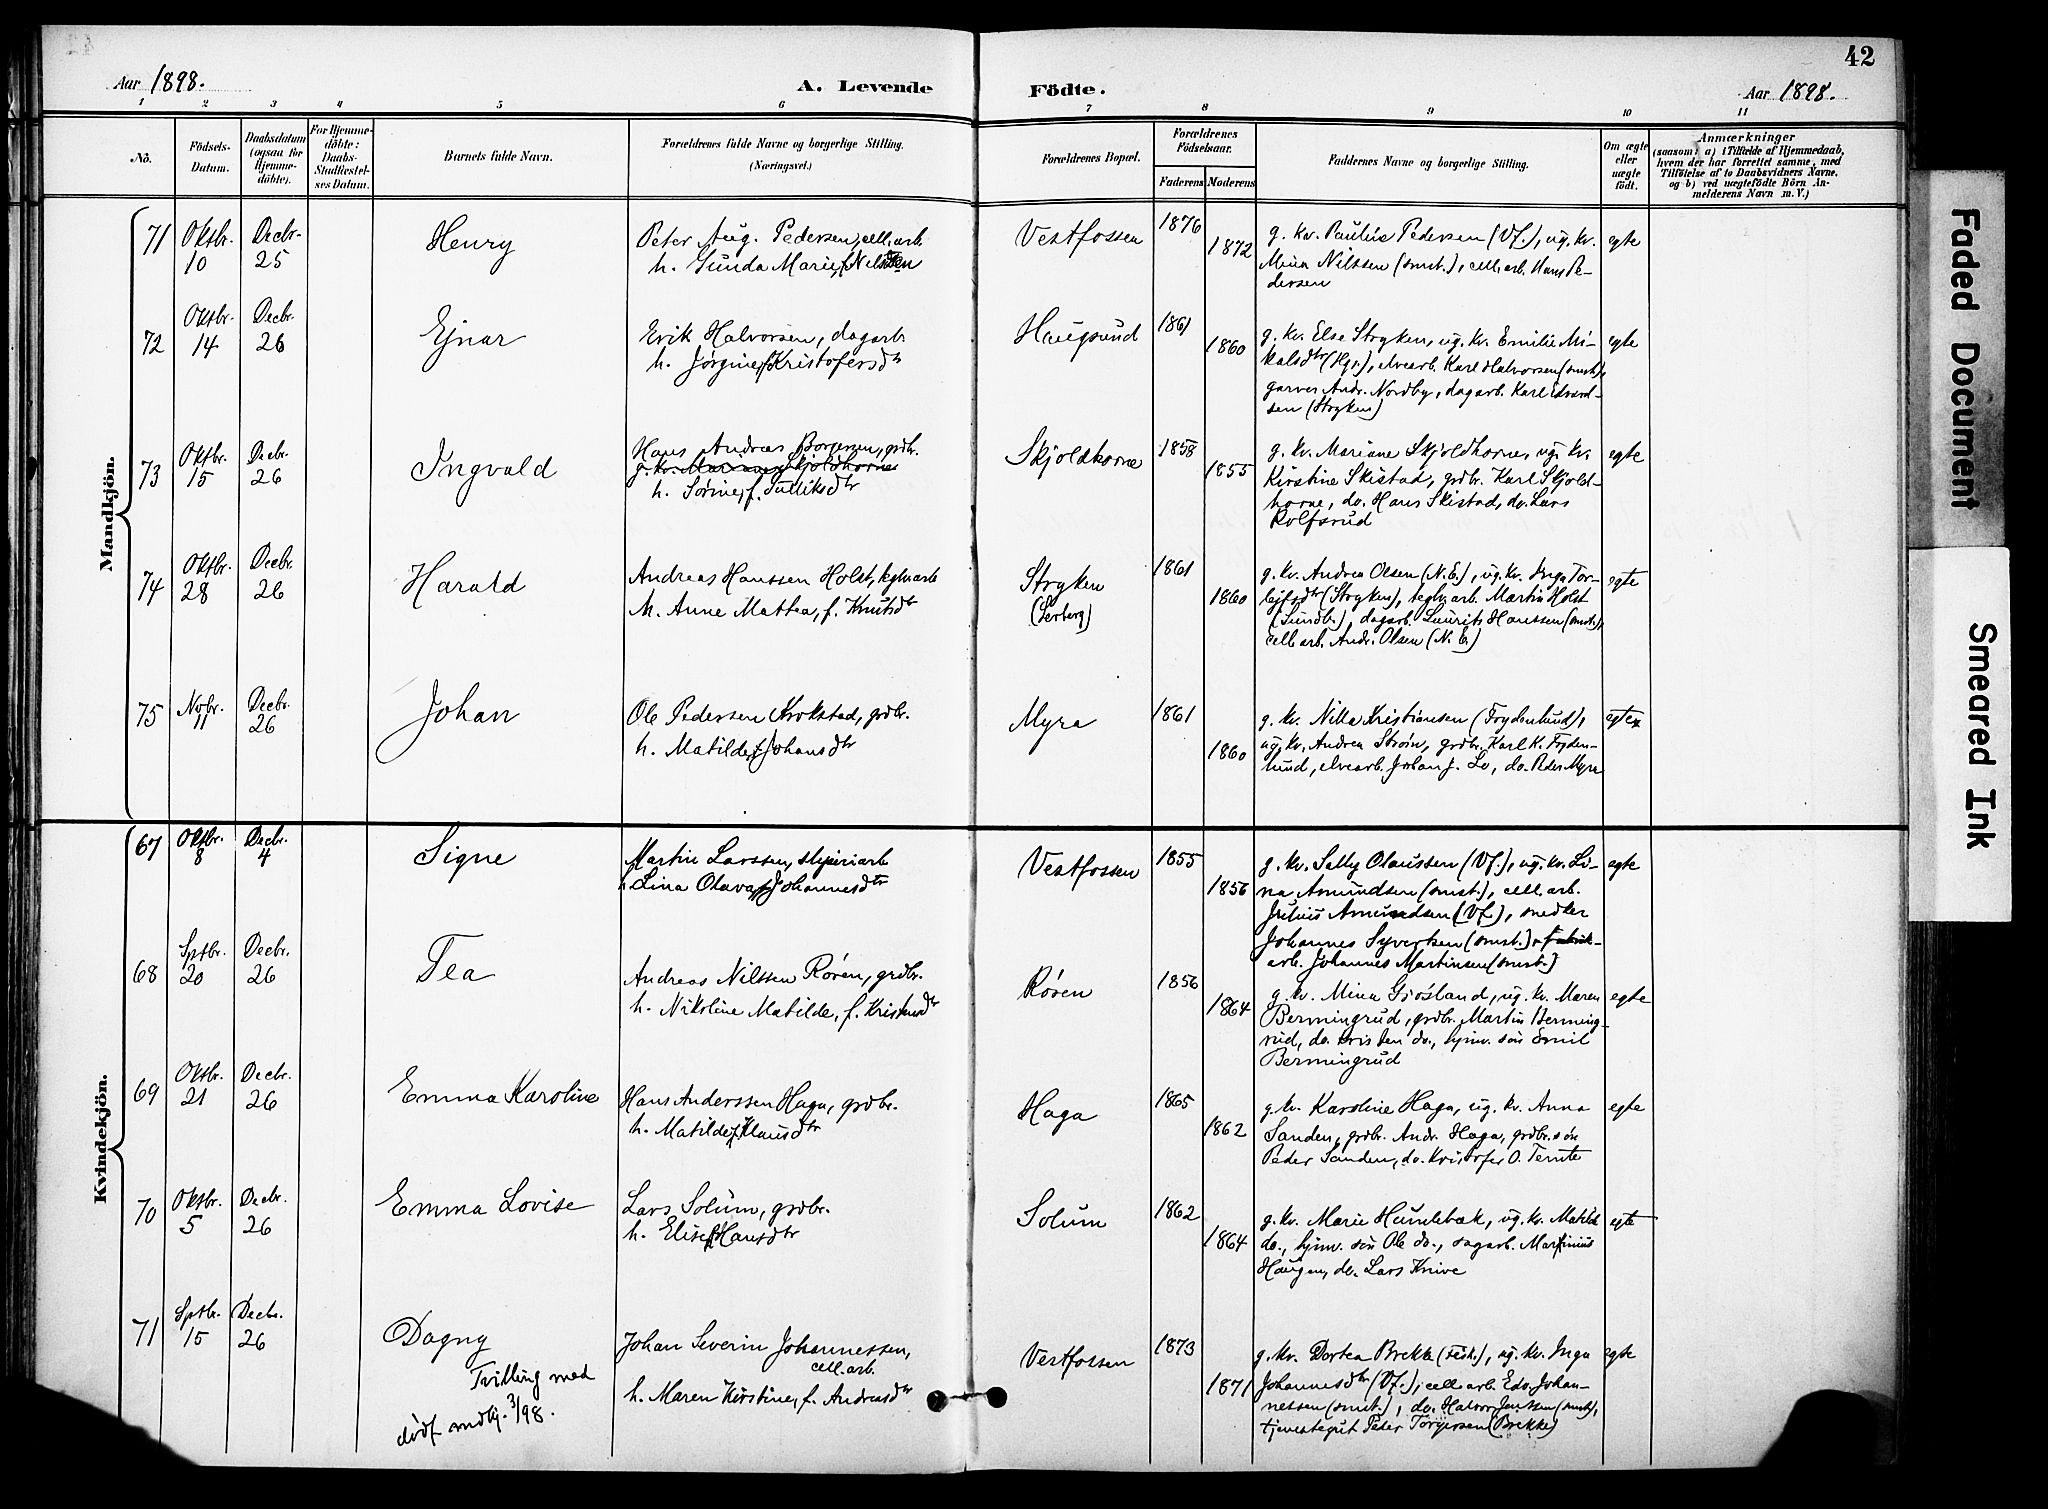 42
Aar 1898.
A. Levende Födte.
Aar 1898.
1 2 3 4 5 6 7 8 9 10 11
No.
Födsels-
Datum.
Daabsdatum
(ogsaa for
Hjemme-
döbte).
For Hjemme-
döbte:
Daabs-
Stadfæstel-
ses Datum.
Barnets fulde Navn.
Forældrenes fulde Navne og borgerlige Stilling.
(Næringsvei.)
Forældrenes Bopæl.
Forældrenes
Födselsaar.
Faderens Moderens
Faddernes Navne og borgerlige Stilling.
Om ægte
eller
uægte
födt.
Anmærkninger
(saasom: a) i Tilfælde af Hjemmedaab,
hvem der har forrettet samme, med
Tilföielse af to Daabsvidners Navne,
og b) ved uægtefödte Börn An-
melderens Navn m. V.)
Mandkjön.
71
Oktbr.
10
Decbr.
25
Henry
Peter Aug. Pedersen, cell. arb.
h. Gunda Marie, f. Nilsen
Vestfossen
1876
1872
g. kv. Paulus Pedersen (Vf.), ug. kv.
Mina Nilssen (smst.), cell. arb. Hans Pe-
dersen
egte
72
Oktbr.
14
Decbr.
26
Ejnar
Erik Halvorsen, dagarb.
h. Jørgine, f. Kristofersdtr
Haugsund
1861
1860
g. kv. Else Stryken, ug. kv. Emilie Mi-
kalsdtr (Hgs.), elvearb. Karl Halvorsen (smst.),
garver Andr. Nordby, dagarb. Karl Edvard-
sen (Stryken)
egte
73
Oktbr.
15
Decbr.
26
Ingvald
Hans Andreas Borgersen, grdbr.
g. kv. Marianne Skjoldhorne
h. Sørine, f. Gulliksdtr
Skjoldhorne
1858
1855
g. kv. Mariane Skjoldhorne, ug. kv.
Kirstine Skistad, grdbr. Karl Skjold-
horne, do. Hans Skistad, do. Lars
Rolfsrud
egte
74
Oktbr.
28
Decbr.
26
Harald
Andreas Hanssen Holst, teglv. arb.
h. Anne Mattea, f. Knutsdtr
Stryken
1861
1860
g. kv. Andrea Olsen (N. E.), ug. kv. Inga Tor-
lejfsdtr (Stryken), teglv. arb. Martin Holst
(Sundb.), dagarb. Laurits Hanssen (smst.),
cell. arb. Andr. Olsen (N. E.)
egte
75
Novbr.
11
Decbr.
26
Johan
Ole Pedersen Krokstad, grdbr.
h. Matilde, f. Johansdtr
Myra
1861
1860
g. kv. Nilla Kristiansen (Frydenlund),
ug. kv. Andrea Strøm, grdbr. Karl K. Fryden-
lund, elvearb. Johan J. Lo, do. Peder Myra
egte
Kvindekjön.
67
Oktbr.
8
Decbr.
4
Signe
Martin Larssen, sliperiarb.
h. Lina Olava, f. Johannesdtr
Vestfossen
1855
1856
g. kv. Selly Olaussen (Vf.), ug. kv. Li-
na Amundsen (smst.), cell. arb.
Julius Amundsen (Vf.), snedker
Johannes Syvertsen (smst.), fabrik-
arb. Johannes Martinsen (smst.)
egte
68
Sptbr.
20
Decbr.
26
Tea
Andreas Nilssen Røren, grdbr.
h. Nikoline Matilde, f. Kristensdtr
Røren
1856
1864
g. kv. Mina Gjøsland, ug. kv. Maren
Bermingrud, grdbr. Martin Berming-
rud, do. Kristen do., hjmv. søn Emil
Bermingrud
egte
69
Oktbr.
21
Decbr.
26
Emma Karoline
Hans Anderssen Haga, grdbr.
h. Matilde, f. Klausdtr
Haga
1865
1862
g. kv. Karoline Haga, ug. kv. Anna
Sanden, grdbr. Andr. Haga, grdbr. søn
Peder Sanden, do. Kristofer O. Temte
egte
70
Oktbr.
5
Decbr.
26
Emma Lovise
Lars Solum, grdbr.
h. Elise, f. Hansdtr
Solum
1862
1864
g. kv. Marie Humlebæk, ug. kv. Matilde
do., hjmv. søn Ole do., sagarb. Martinius
Haugen, do. Lars Knive
egte
71
Sptbr.
15
Decbr.
26
Dagny
Tvilling med
dødf. mdkj. 3/98.
Johan Severin Johannessen,
cell. arb.
h. Maren Kirstine, f. Andersdtr
Vestfossen
1873
1871
g. kv. Dortea Brekke (Fisk.), ug. kv. Inga
Johannesdtr (Vf.), cell. arb. Edv. Johan-
nessen (smst.), do. Halvor Jenssen (smst.),
tjenestegut Peder Torgersen (Brekke)
egte
Faded Document
Smeared Ink